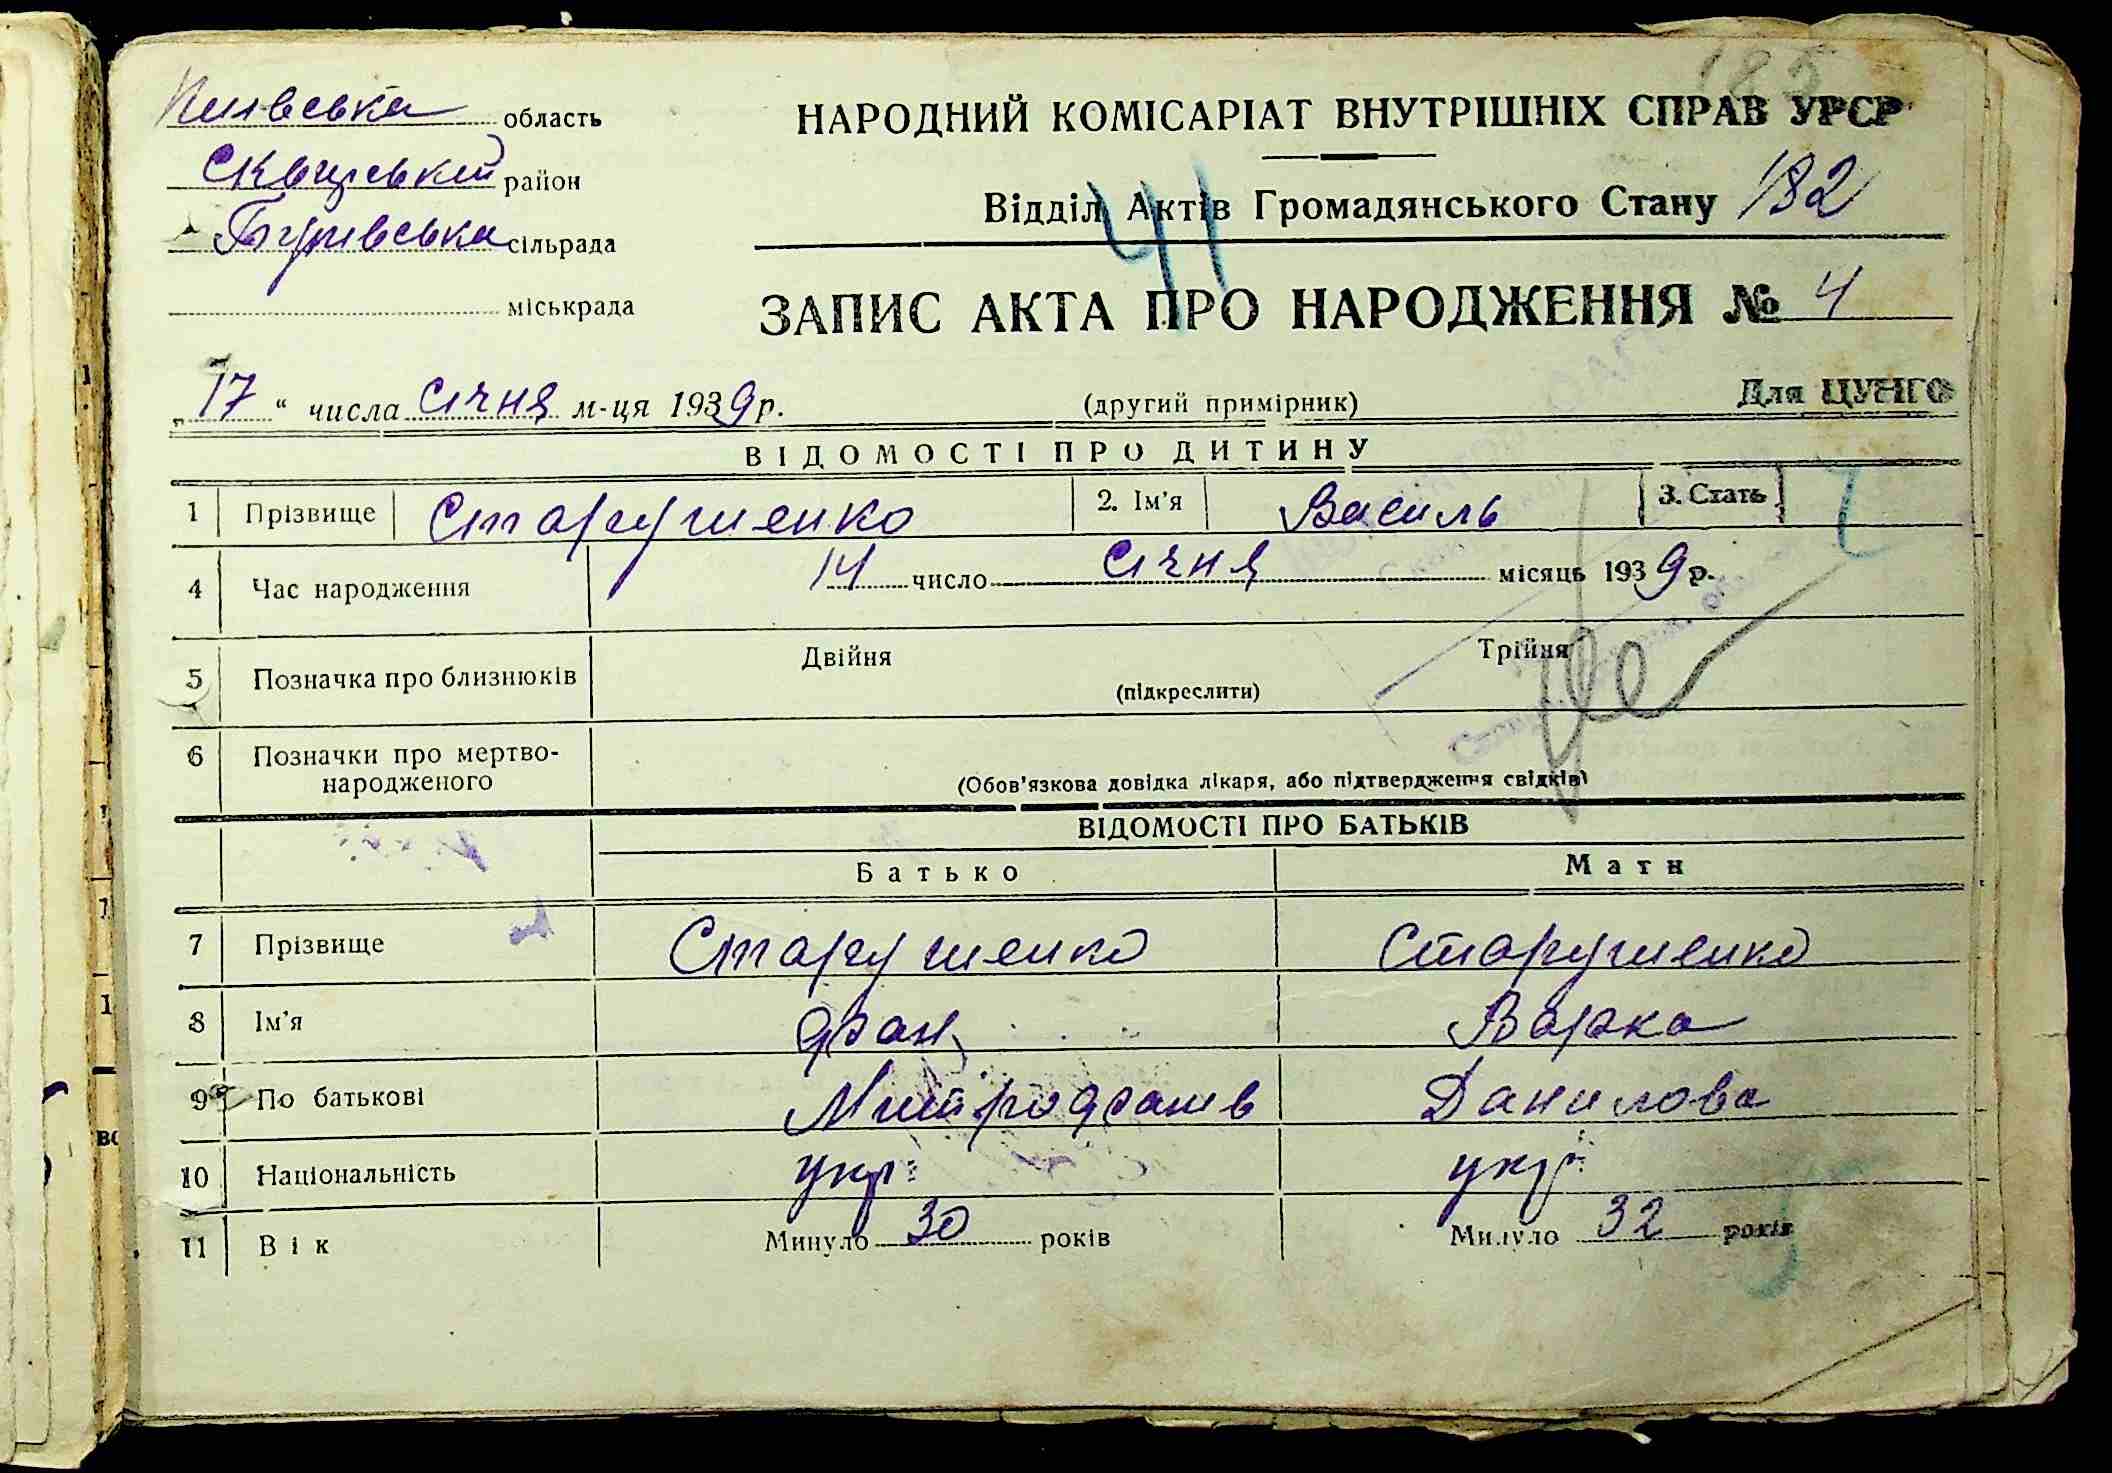 185
Київська область
НАРОДНИЙ КОМІСАРІАТ ВНУТРІШНІХ СПРАВ УРСР
Сквирський район
Відділ Актів Громадянського Стану 182
41
сільрада
міськрада
ЗАПИС АКТА ПРО НАРОДЖЕННЯ № 4
„17“ числа січня м-ця 1939 р.
(другий примірник)
Для ЦУНГО
ВІДОМОСТІ ПРО ДИТИНУ
1 Прізвище Старушенко 2. Ім'я Василь 3. Стать
4 Час народження 14 число січня місяць 1939 р.
5 Позначка про близнюків Двійня Трійня
(підкреслити)
6 Позначки про мертво-
народженого
(Обов'язкова довідка лікаря, або підтвердження свідків)
ВІДОМОСТІ ПРО БАТЬКІВ
Батько Мати
7 Прізвище Старушенко Старушенко
8 Ім'я Варка
9 По батькові Данилова
10 Національність укр. укр.
11 Вік Минуло 30 років Минуло 32 років